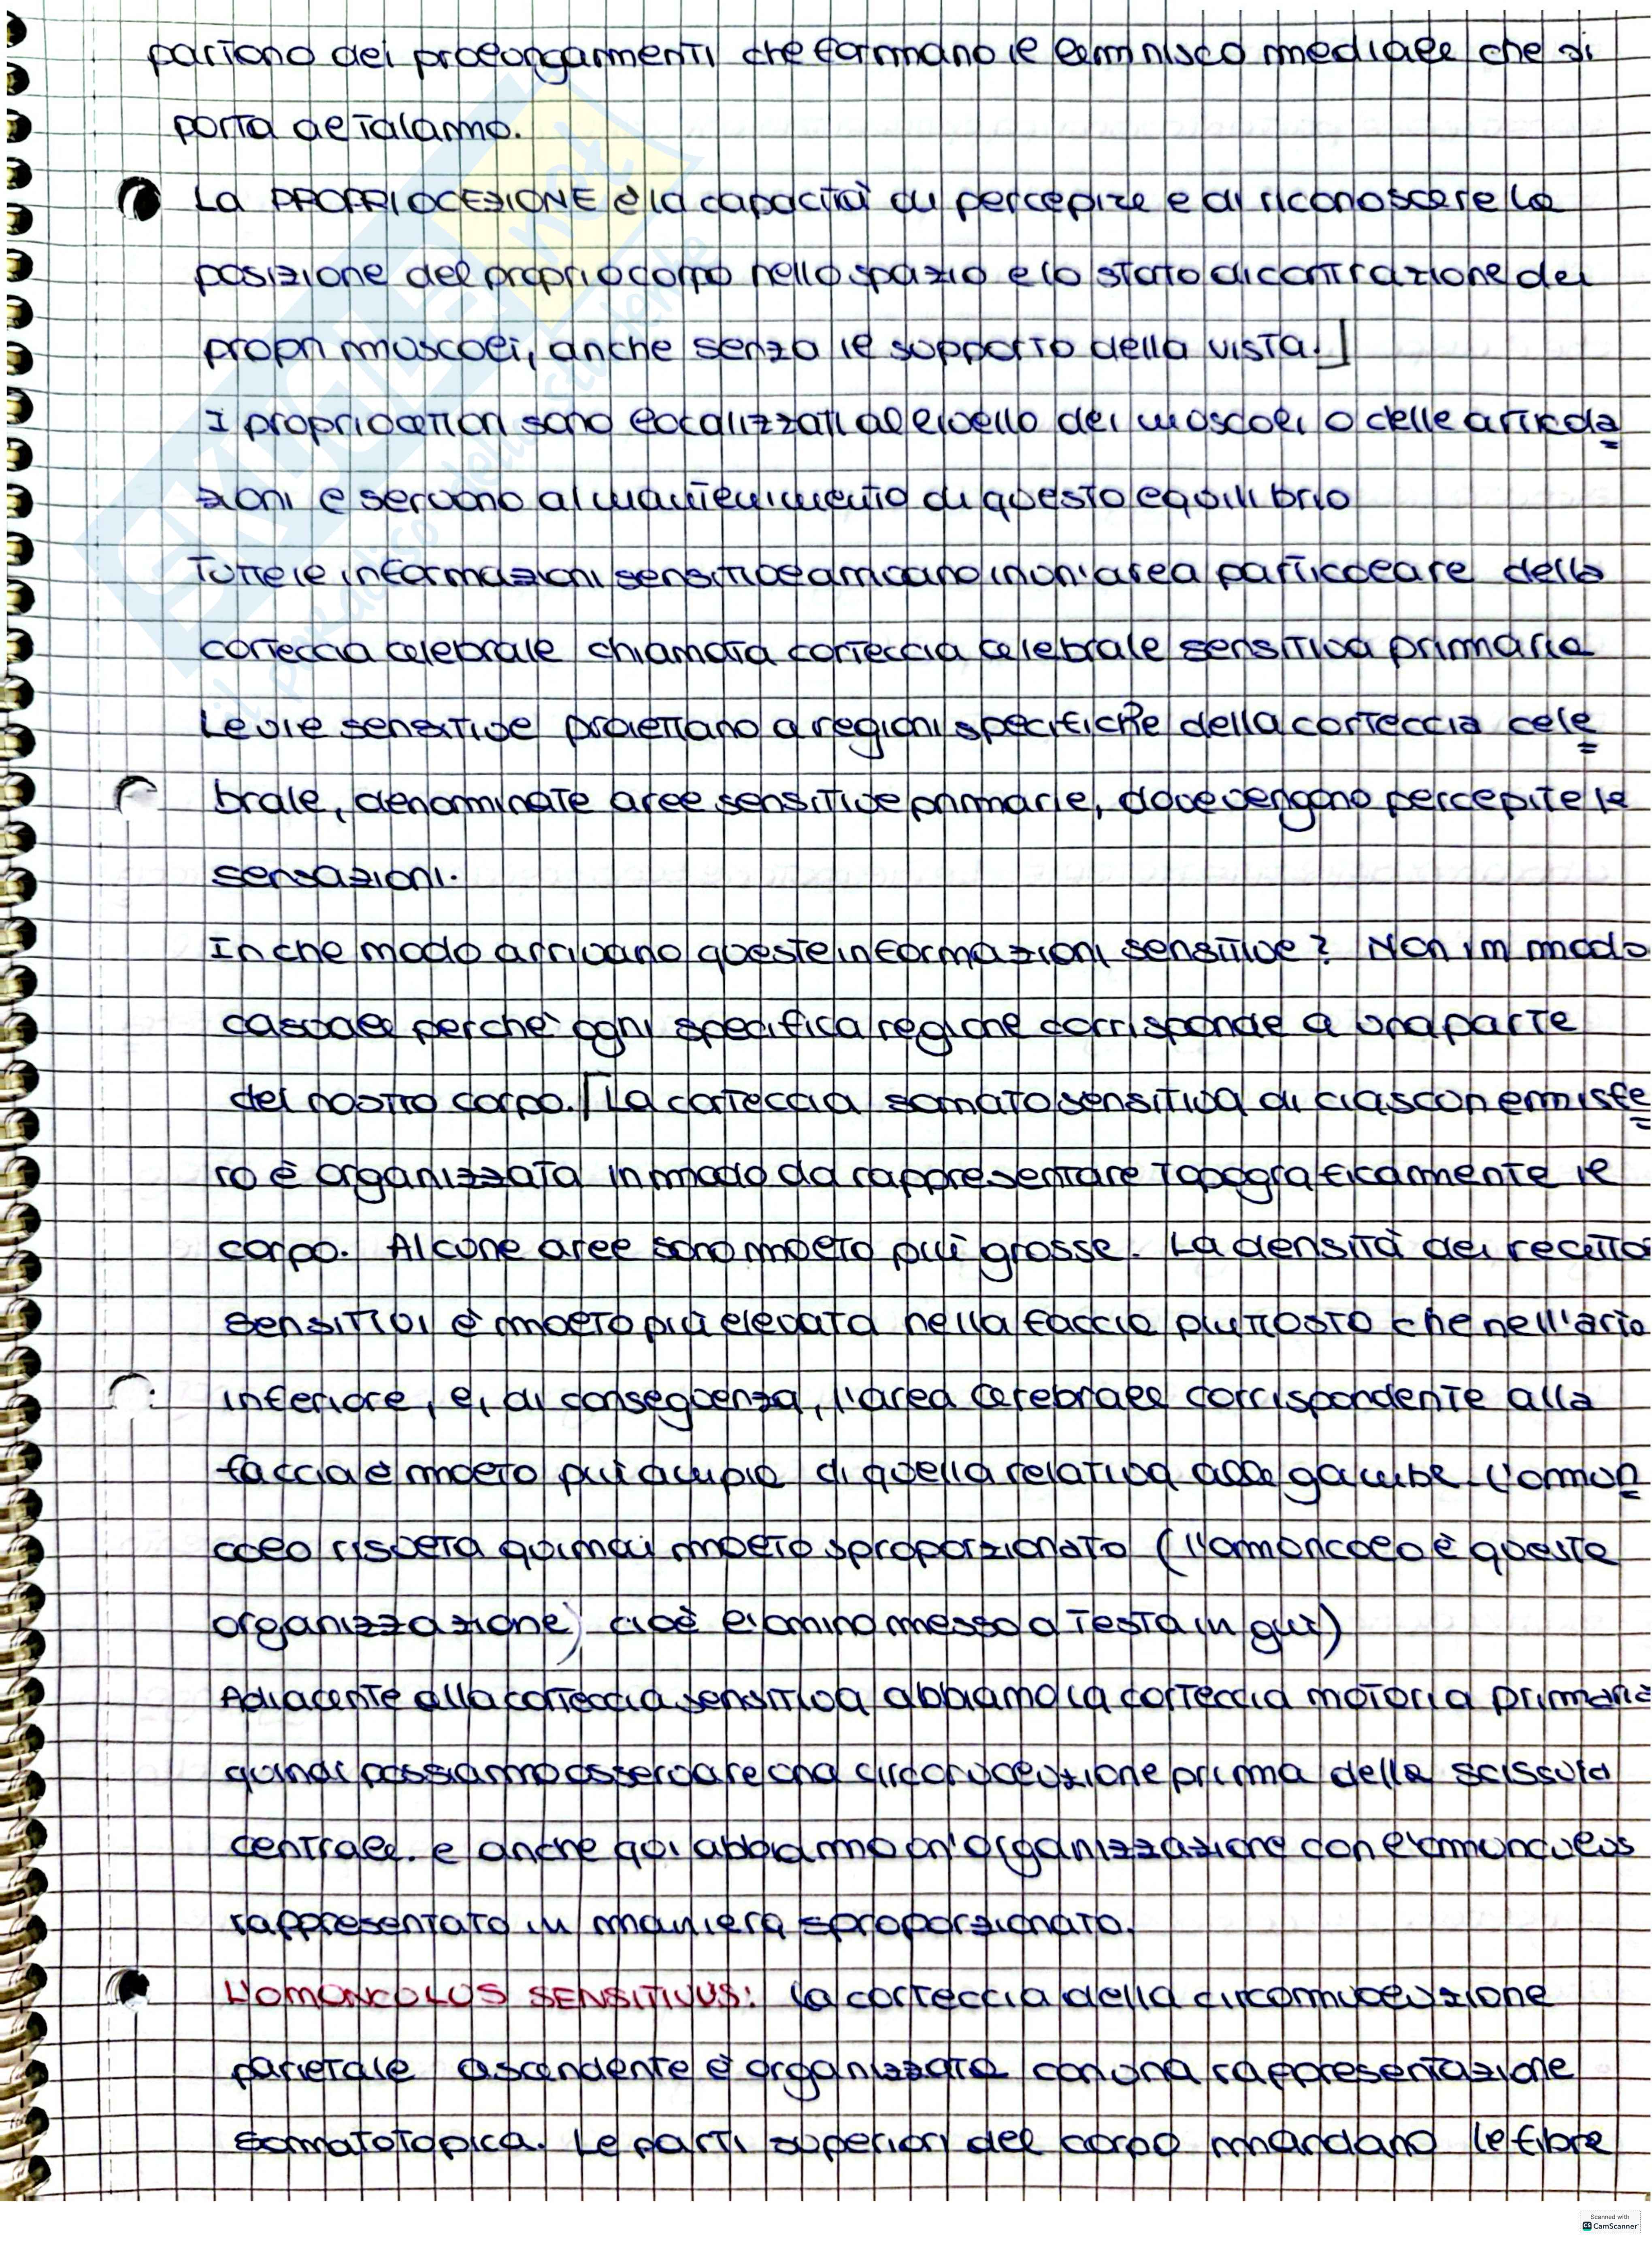 partono dei prolungamenti che formano il lemnisco mediale che si
porta al talamo.
La PROPRIOCEZIONE è la capacità di percepire e di riconoscere la
posizione del proprio corpo nello spazio e lo stato di contrazione dei
propri muscoli, anche senza il supporto della vista.⌋
I propriocettori sono localizzati al livello dei muscoli o delle articola
zioni e servono al mantenimento di questo equilibrio
Tutte le informazioni sensitive arrivano in un'area particolare della
corteccia celebrale chiamata corteccia celebrale sensitiva primaria
Le vie sensitive proiettano a regioni specifiche della corteccia cele
brale, denominate aree sensitive primarie, dove vengono percepite le
sensazioni.
In che modo arrivano queste informazioni sensitive? Non im modo
casuale perchè ogni specifica regione corrisponde a una parte
del nostro corpo. ⌈La corteccia somatosensitiva di ciascun emisfe
ro è organizzata in modo da rappresentare topograficamente il
corpo. Alcune aree sono molto più grosse. La densità dei recetto
sensitivi è molto più elevata nella faccia piuttosto che nell'arto
inferiore, e, di conseguenza, l'area cerebrale corrispondente alla
faccia è molto più ampia di quella relativa alle gambe. L'omun
colo risulta quindi molto sproporzionato (l'omuncolo è questa
organizzazione) cioè l'omino messo a testa in giù)
Adiacente alla corteccia sensitiva abbiamo la corteccia motoria primaria
quindi possiamo osservare una circonvoluzione prima della scissura
centrale. e anche qui abbiamo un'organizzazione con l'omunculus
rappresentato in maniera sproporzionato.
L'OMUNCOLUS SENSITIVUS: la corteccia della circonvoluzione
parietale ascendente è organizzata con una rappresentazione
somatotopica. Le parti superiori del corpo mandano le fibre
SKUOLA.net
il paradiso dello studente
Scanned with
CS CamScanner